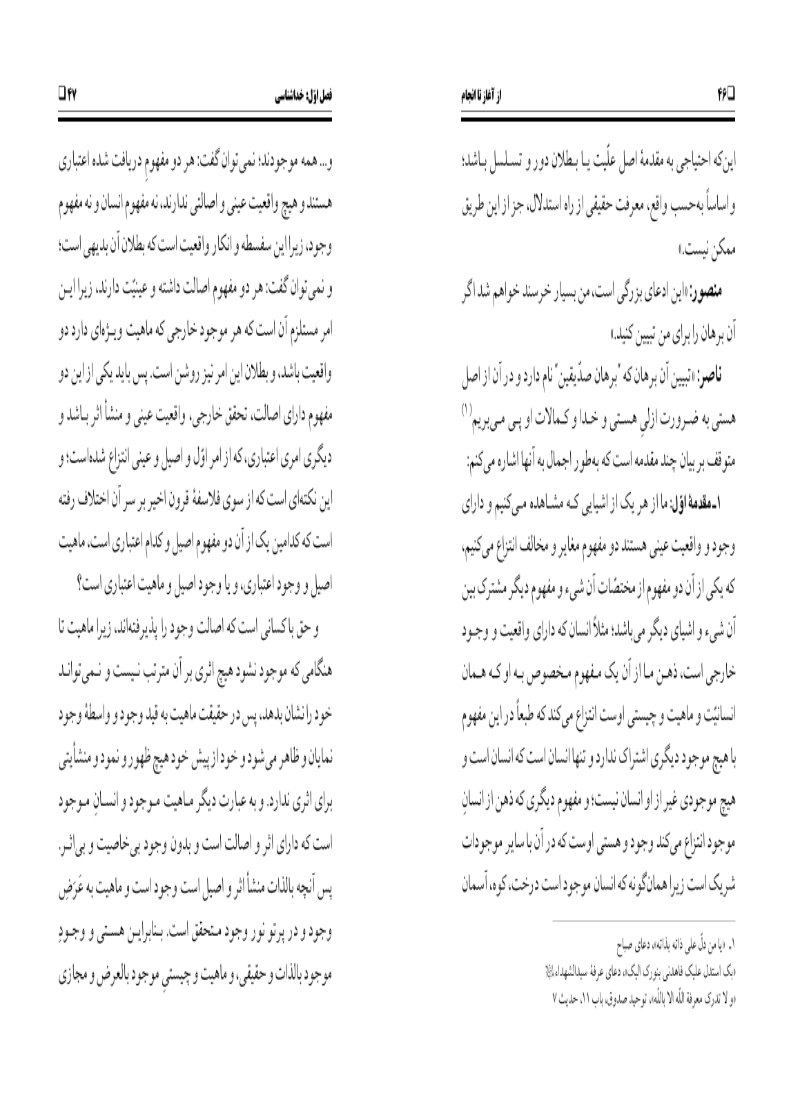 ❑ ۴۶
از آغاز تا انجام
این‌که احتیاجی به مقدمهٔ اصل علّیت یا بطلان دور و تسلسل باشد؛
و اساساً به‌حسب واقع، معرفت حقیقی از راه استدلال، جز از این طریق
ممکن نیست.»
منصور: «این ادعای بزرگی است، من بسیار خرسند خواهم شد اگر
آن برهان را برای من تبیین کنید.»
ناصر: «تبیین آن برهان که "برهان صدّیقین" نام دارد و در آن از اصل
هستی به ضرورت ازلیِ هستی و خدا و کمالات او پی می‌بریم(۱)
متوقف بر بیان چند مقدمه است که به‌طور اجمال به آنها اشاره می‌کنم:
۱ـ مقدمهٔ اوّل: ما از هر یک از اشیایی که مشاهده می‌کنیم و دارای
وجود و واقعیت عینی هستند دو مفهوم مغایر و مخالف انتزاع می‌کنیم،
که یکی از آن دو مفهوم از مختصّات آن شیء و مفهوم دیگر مشترک بین
آن شیء و اشیای دیگر می‌باشد؛ مثلاً انسان که دارای واقعیت و وجود
خارجی است، ذهن ما از آن یک مفهوم مخصوص به او که همان
انسانیّت و ماهیت و چیستی اوست انتزاع می‌کند که طبعاً در این مفهوم
با هیچ موجود دیگری اشتراک ندارد و تنها انسان است که انسان است و
هیچ موجودی غیر از او انسان نیست؛ و مفهوم دیگری که ذهن از انسانِ
موجود انتزاع می‌کند وجود و هستی اوست که در آن با سایر موجودات
شریک است زیرا همان‌گونه که انسان موجود است درخت، کوه، آسمان
۱ـ «یا من دلّ علی ذاته بذاته»، دعای صباح
«بک استدل علیک فاهدنی بنورک الیک»، دعای عرفهٔ سیدالشهداء
«و لا تدرک معرفة اللّه الا باللّه»، توحید صدوق، باب ۱۱، حدیث ۷
فصل اوّل: خداشناسی
۴۷ ❑
و... همه موجودند؛ نمی‌توان گفت: هر دو مفهومِ دریافت شده اعتباری
هستند و هیچ واقعیت عینی و اصالتی ندارند، نه مفهوم انسان و نه مفهوم
وجود، زیرا این سفسطه و انکار واقعیت است که بطلان آن بدیهی است؛
و نمی‌توان گفت: هر دو مفهوم اصالت داشته و عینیّت دارند، زیرا این
امر مستلزم آن است که هر موجود خارجی که ماهیت ویژه‌ای دارد دو
واقعیت باشد، و بطلان این امر نیز روشن است. پس باید یکی از این دو
مفهوم دارای اصالت، تحقق خارجی، واقعیت عینی و منشأ اثر باشد و
دیگری امری اعتباری، که از امر اوّل و اصیل و عینی انتزاع شده‌است؛ و
این نکته‌ای است که از سوی فلاسفهٔ قرون اخیر بر سر آن اختلاف رفته
است که کدامین یک از آن دو مفهوم اصیل و کدام اعتباری است، ماهیت
اصیل و وجود اعتباری، و یا وجود اصیل و ماهیت اعتباری است؟
و حق با کسانی است که اصالت وجود را پذیرفته‌اند، زیرا ماهیت تا
هنگامی که موجود نشود هیچ اثری بر آن مترتب نیست و نمی‌تواند
خود را نشان بدهد، پس در حقیقت ماهیت به قید وجود و واسطهٔ وجود
نمایان و ظاهر می‌شود و خود از پیش خود هیچ ظهور و نمود و منشأیتی
برای اثری ندارد. و به عبارت دیگر ماهیت موجود و انسانِ موجود
است که دارای اثر و اصالت است و بدون وجود بی‌خاصیت و بی‌اثر.
پس آنچه بالذات منشأ اثر و اصیل است وجود است و ماهیت به عَرَضِ
وجود و در پرتو نور وجود متحقق است. بنابراین هستی و وجودِ
موجود بالذات و حقیقی، و ماهیت و چیستیِ موجود بالعرض و مجازی